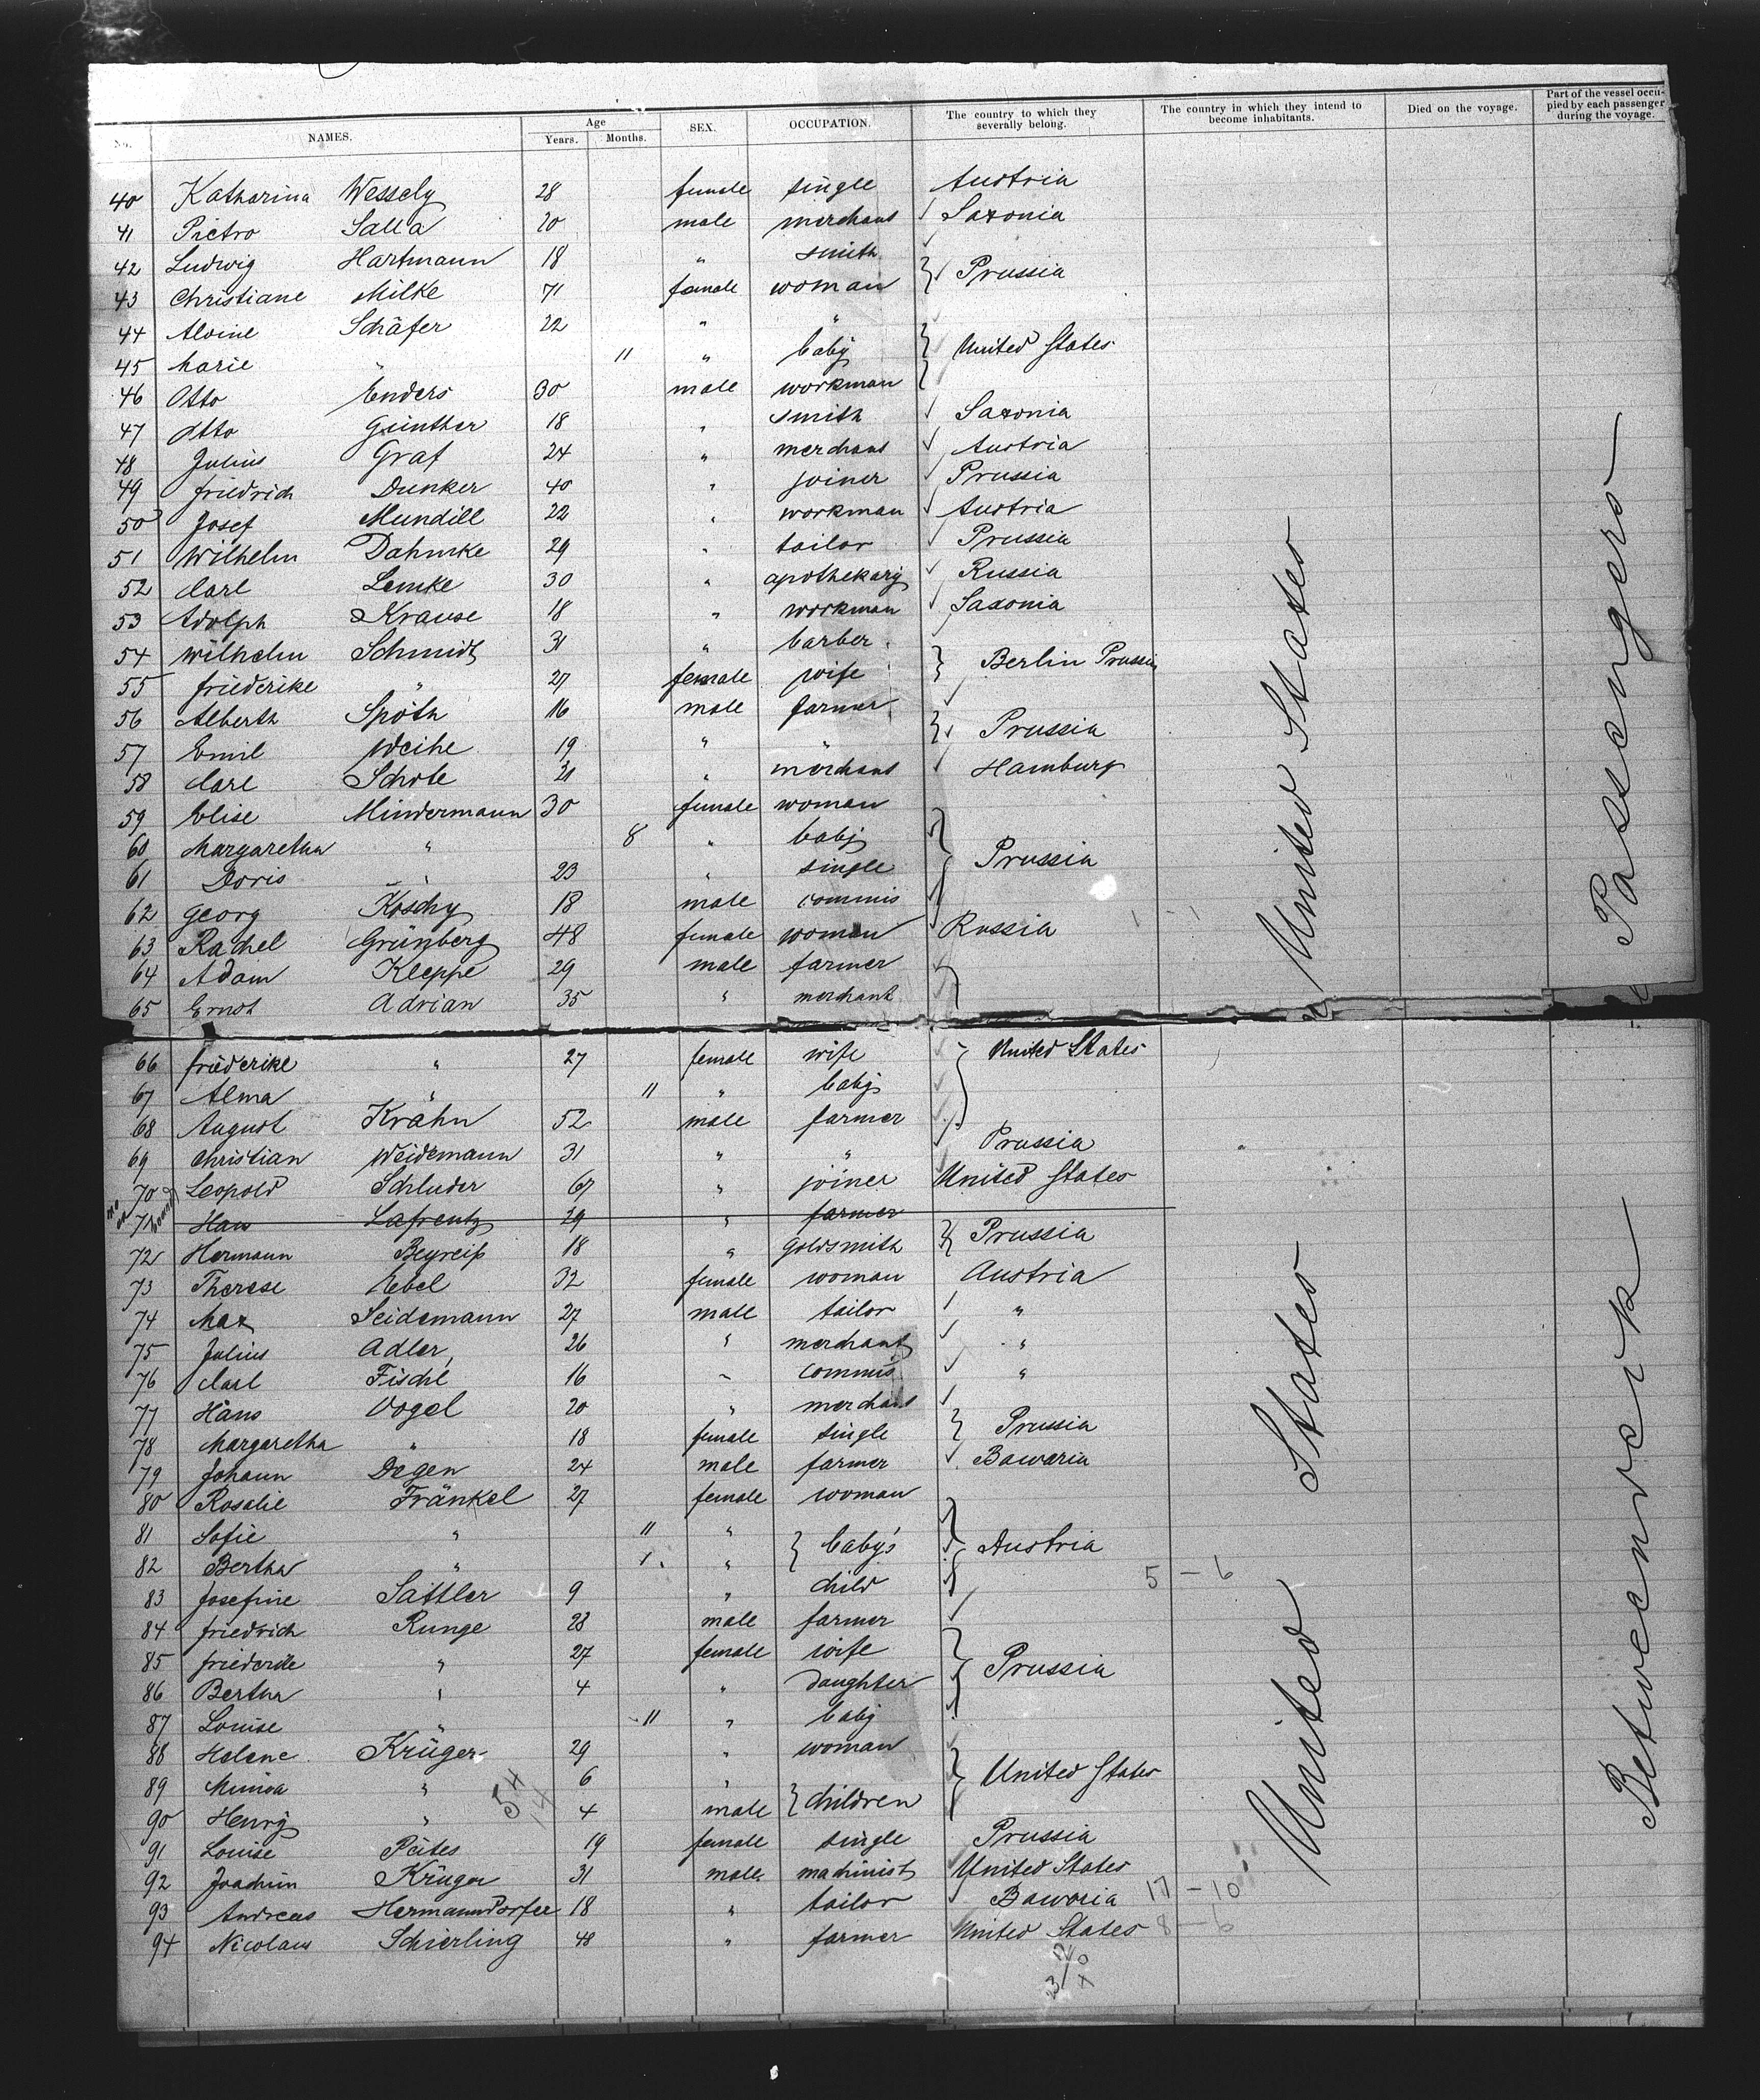 No. NAMES. Age Years. Months. SEX. OCCUPATION. The country to which they severally belong. The country in which they intend to become inhabitants. Died on the voyage. Part of the vessel occupied by each passenger during the voyage.
40 Katharina Wessely 28 female single Austria
41 Pietro Salla 20 male merchant Saxonia
42 Ludwig Hartmann 18 " smith
43 Christiane Milke 71 female woman } Prussia
44 Alvine Schäfer 22 " "
45 Marie " 11 " baby } United States
46 Otto Enders 30 male workman
47 Otto Günther 18 " smith Saxonia
48 Julius Graf 24 " merchant Austria
49 Friedrich Dunker 40 " joiner Prussia
50 Josef Mundill 22 " workman Austria
51 Wilhelm Dahmke 29 " tailor Prussia
52 Carl Lemke 30 " apothekary Russia
53 Adolph Krause 18 " workman Saxonia
54 Wilhelm Schmidt 31 " barber
55 Friederike " 27 female wife } Berlin Prussia
56 Alberth Späth 16 male farmer
57 Emil Weihe 19 " " } Prussia
58 Carl Schote 21 " merchant Hamburg
59 Elise Mindermann 30 female woman
60 Margaretha " 8 " baby
61 Doris " 23 " single } Prussia
62 Georg Koschy 18 male commis
63 Rachel Grünberg 48 female woman Russia
64 Adam Kleppe 29 male farmer
65 Ernst Adrian 35 " merchant
66 Friederike " 27 female wife } United States
67 Alma " 11 " baby
68 August Krähn 52 male farmer
69 Christian Weidemann 31 " " Prussia
70 Leopold Schluder 67 " joiner United States
71 Hans Lafrentz 29 " farmer
72 Hermann Beyreiß 18 " Goldsmith } Prussia
73 Therese Nebel 32 female woman Austria
74 Max Seidemann 27 male tailor "
75 Julius Adler 26 " merchant "
76 Carl Fischl 16 " commis "
77 Hans Vogel 20 " merchant
78 Margaretha " 18 female single } Prussia
79 Johann Degen 24 male farmer Bawaria
80 Rosalie Fränkel 27 female woman
81 Sofie " 11 "
82 Bertha " 1 " } baby's } Austria
83 Josefine Sattler 9 " child 5 - 6
84 Friedrich Runge 28 male farmer
85 Friederike " 27 female wife
86 Bertha " 4 " daughter } Prussia
87 Louise " 11 " baby
88 Helene Krüger 29 " woman
89 Minna " 6 " } United States
90 Henry " 4 male } children
91 Louise Peites 19 female single Prussia
92 Joachim Krüger 31 male machinist United States
93 Andreas Hermanndorfer 18 " tailor Bawaria 17 - 10
94 Nicolaus Schierling 48 " farmer United States 8 - 6
United States
United States
Passengers
Betweendeck